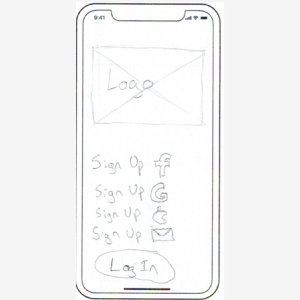 9:41
Logo
Sign Up f
Sign Up G
Sign Up
Sign Up
Log In